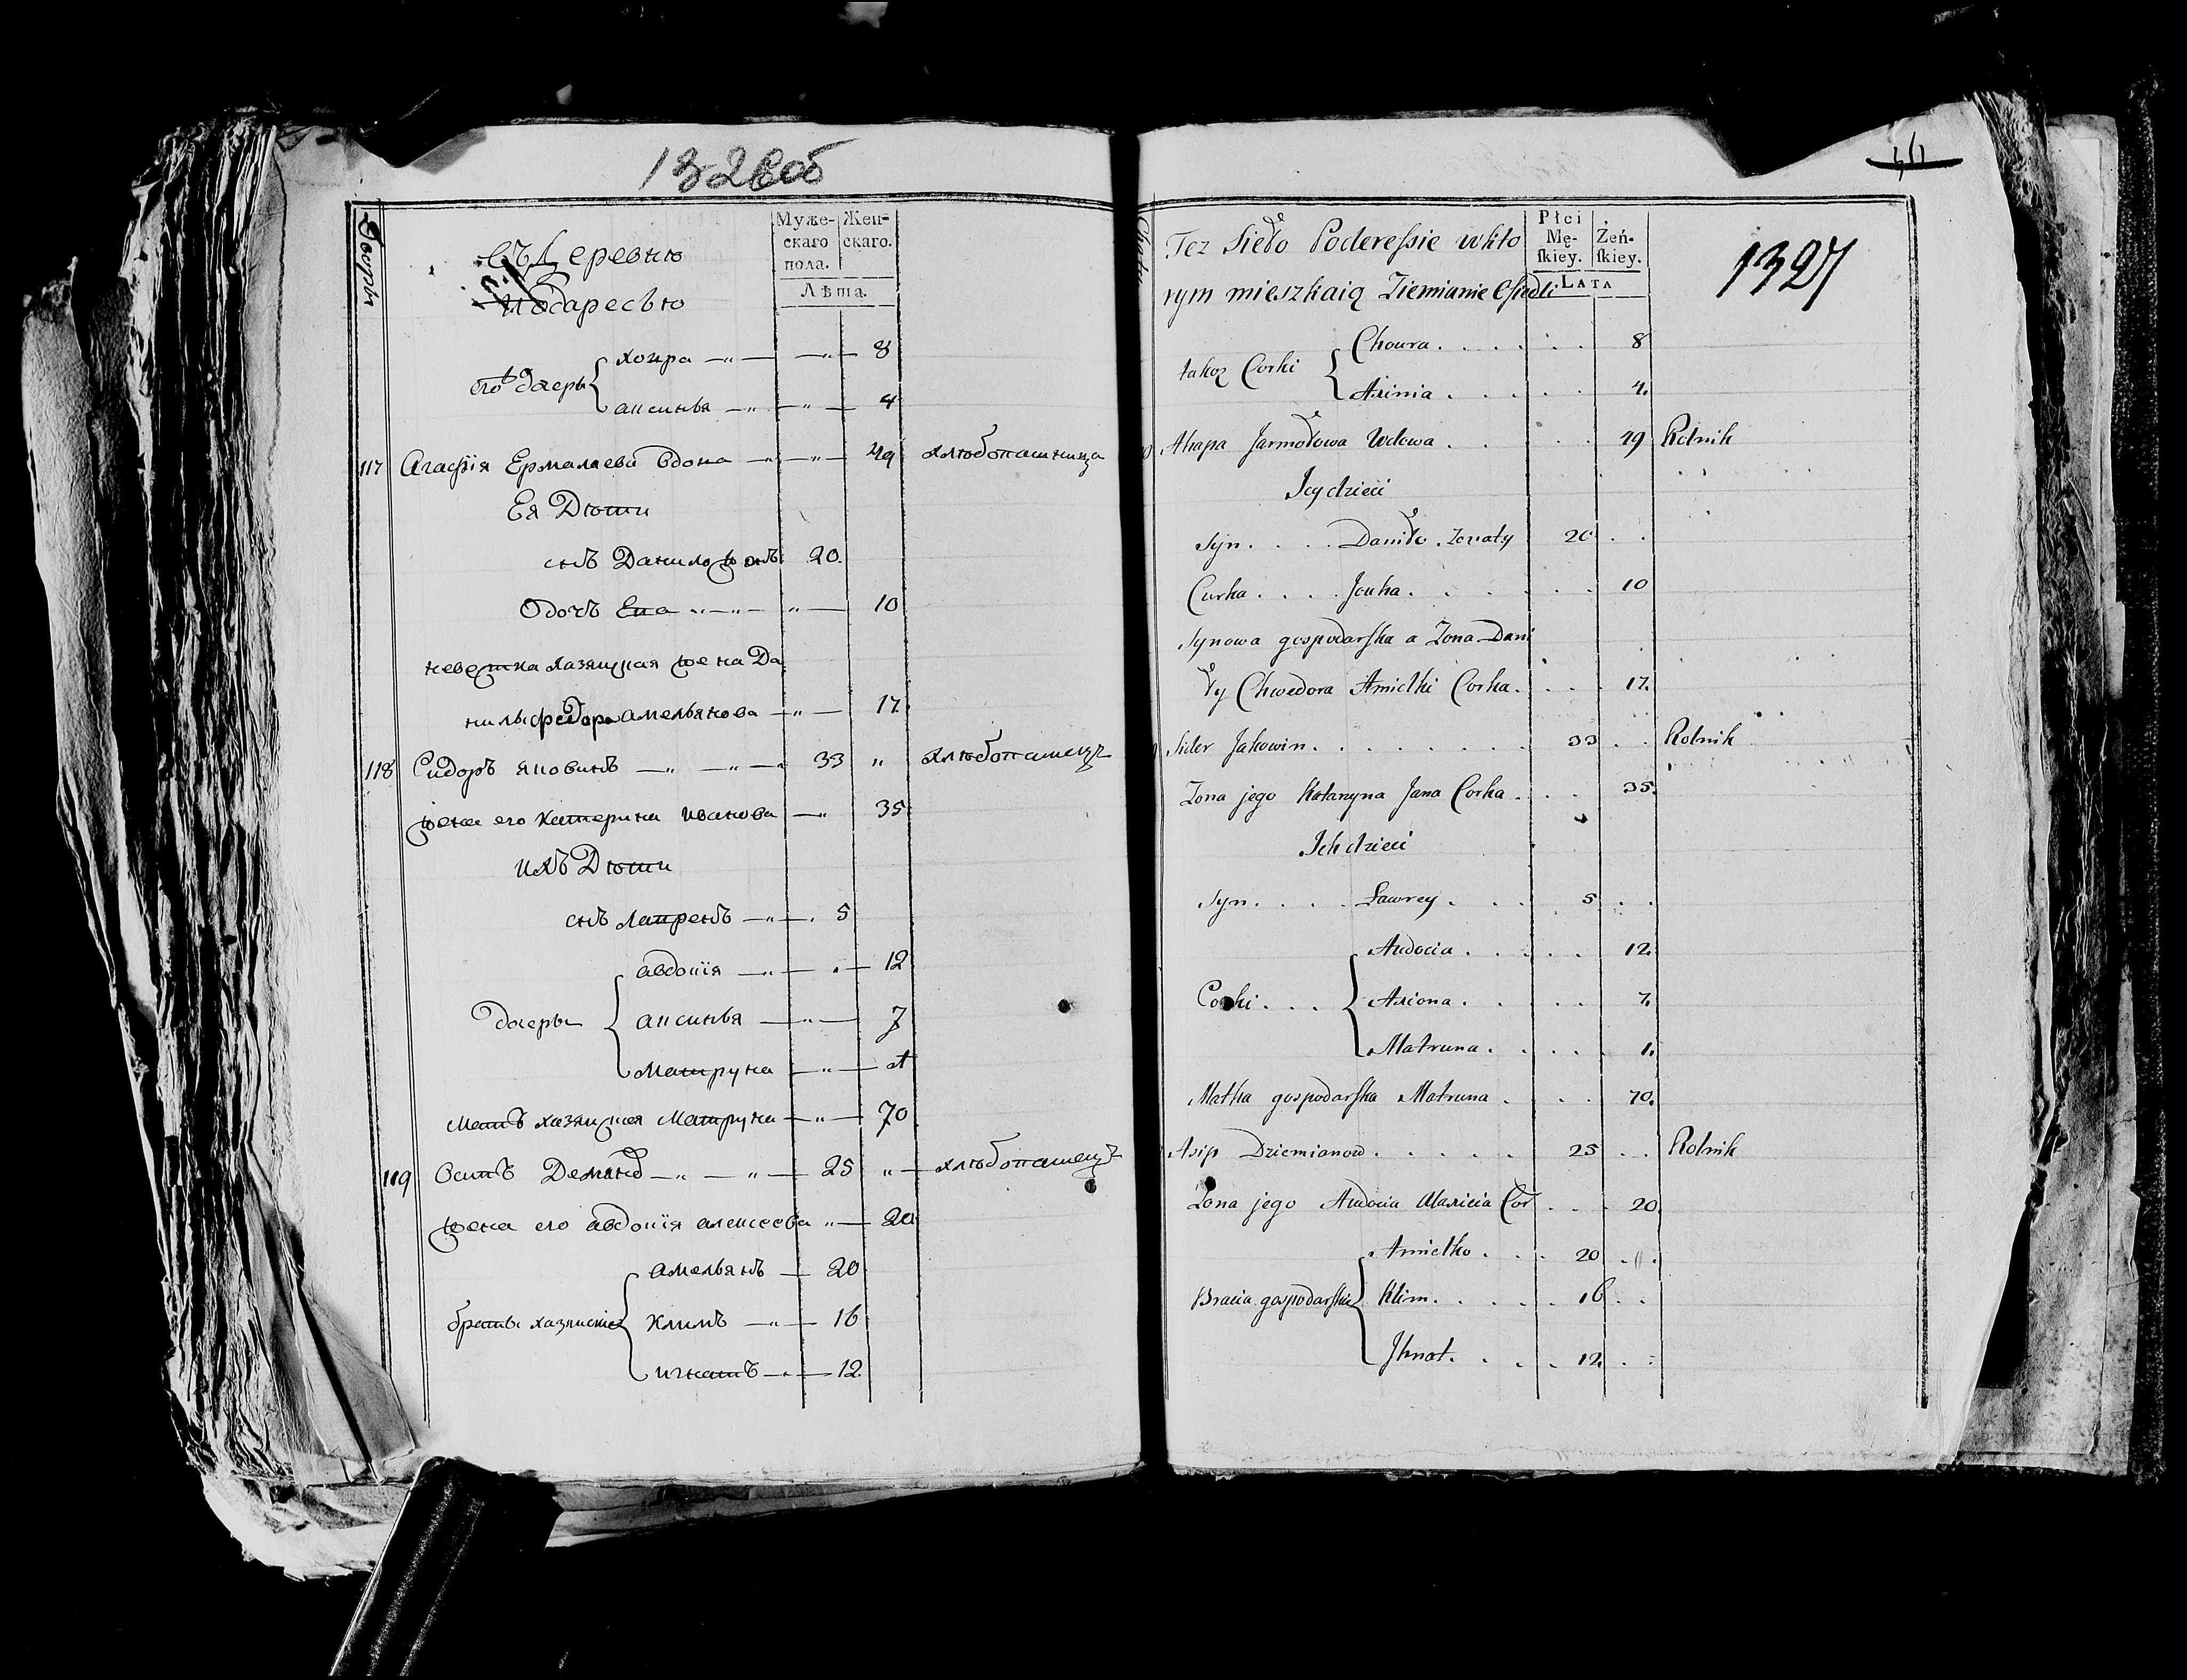 132 об
Дворы
въ Деревню
Подаресью
Муже-
скаго
пола.
Жен-
скаго.
Лѣта.
его дочеры
хоира 8
аксинья 4
117 Агафія Ермалаева вдова 49 хлѣбопашница
Ея Дѣти
снъ Данило жонъ: 20.
дочъ Ева 10
невестка хазяцкая жена Да
нилы федора амельянова 17.
118 Сидоръ яковинъ 33 " хлѣбопашецъ
жена его катерина иванова 35
ихъ Дѣти
снъ лавренъ 5
дочеры
авдокія 12
аксинья 7
матруна 1
мать хазяцкая матруна 70
119 Осипъ Демянов 25 " хлѣбопашецъ
жена его авдокія алексеева 20
браты хазяиские
амельянъ 20
климъ 16
игнатъ 12.
Też Sieło Poderessie w któ
rym mieszkaią Ziemianie Osiedli
Płci
Mę-
skiey.
Żeń-
skiey.
LATA
1327
takoż Corki
Choura 8
Axinia 4.
Ahapa Jarmołowa Wdowa 49 Rolnik
Jey dzieci
Syn Daniło żonaty 20
Curka Jouka 10
Synowa gospodarska a Żona Dani
ły Chwedora Amielki Corka 17.
Sider Jakowin 33 Rolnik
Żona jego Katarzyna Jana Corka 35.
Ich dzieci
Syn Ławrey 5
Corki
Audocia 12.
Axiona 7.
Matruna 1.
Matka gospodarska Matruna 70.
Asip Dziemianow 25 Rolnik
Żona jego Audocia Alaxieia Cor 20
Bracia gospodarskie
Amielko 20
Klim 16
Ihnat 12.